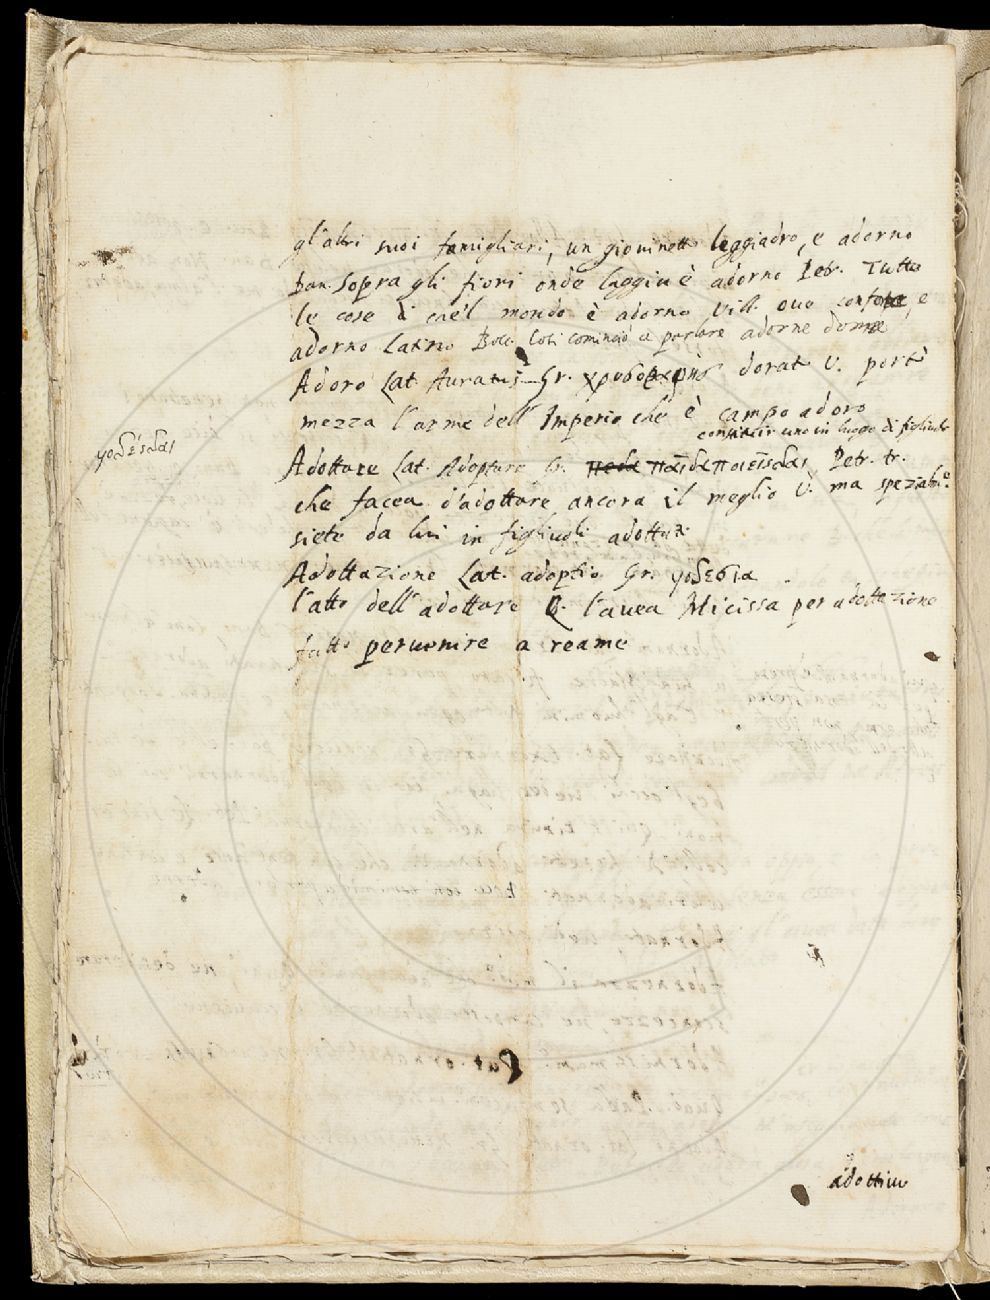 gl'altri suoi famigliari, un giovinetto leggiadro, e adorno
Dan. Sopra gli fiori onde laggiu è adorno Petr. Tutte
le cose di che'l mondo è adorno Vill. oue e
adorno Latino Bocc. Così cominciò a parlare adorne
Adoro Lat. Auratus Gr. dorato V. portò
mezza l'arme dell'Imperio che è campo adoro
constituir uno in luogo di figliuolo
υοθέσθαι
Adottare Lat. Adoptare Gr. παῖδα ποιεῖσθαι Petr. tr.
che facea d'adottare ancora il meglio V. ma spezialm.e
siete da lui in figliuoli adottati
Adottazione Lat. adoptio Gr. υοθεσια
l'atto dell'adottare l'auea Micissa per adottazione
fatto peruenire a reame
Lat.
adottiuo